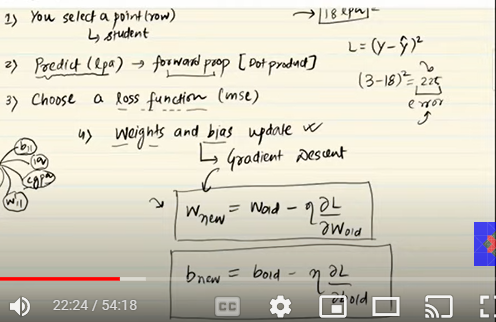 1) You select a point (row)
↳ student
→ [18 lpa]
L = (y - ŷ)²
2) Predict (lpa) → forward prop [Dot product]
(3-18)² = 225
error
3) Choose a loss function (mse)
4) Weights and bias update
↳ Gradient Descent
b11
iq
cgpa
w11
Wnew = Wold - η ∂L/∂Wold
bnew = bold - η ∂L/∂bold
22:24 / 54:18
CC